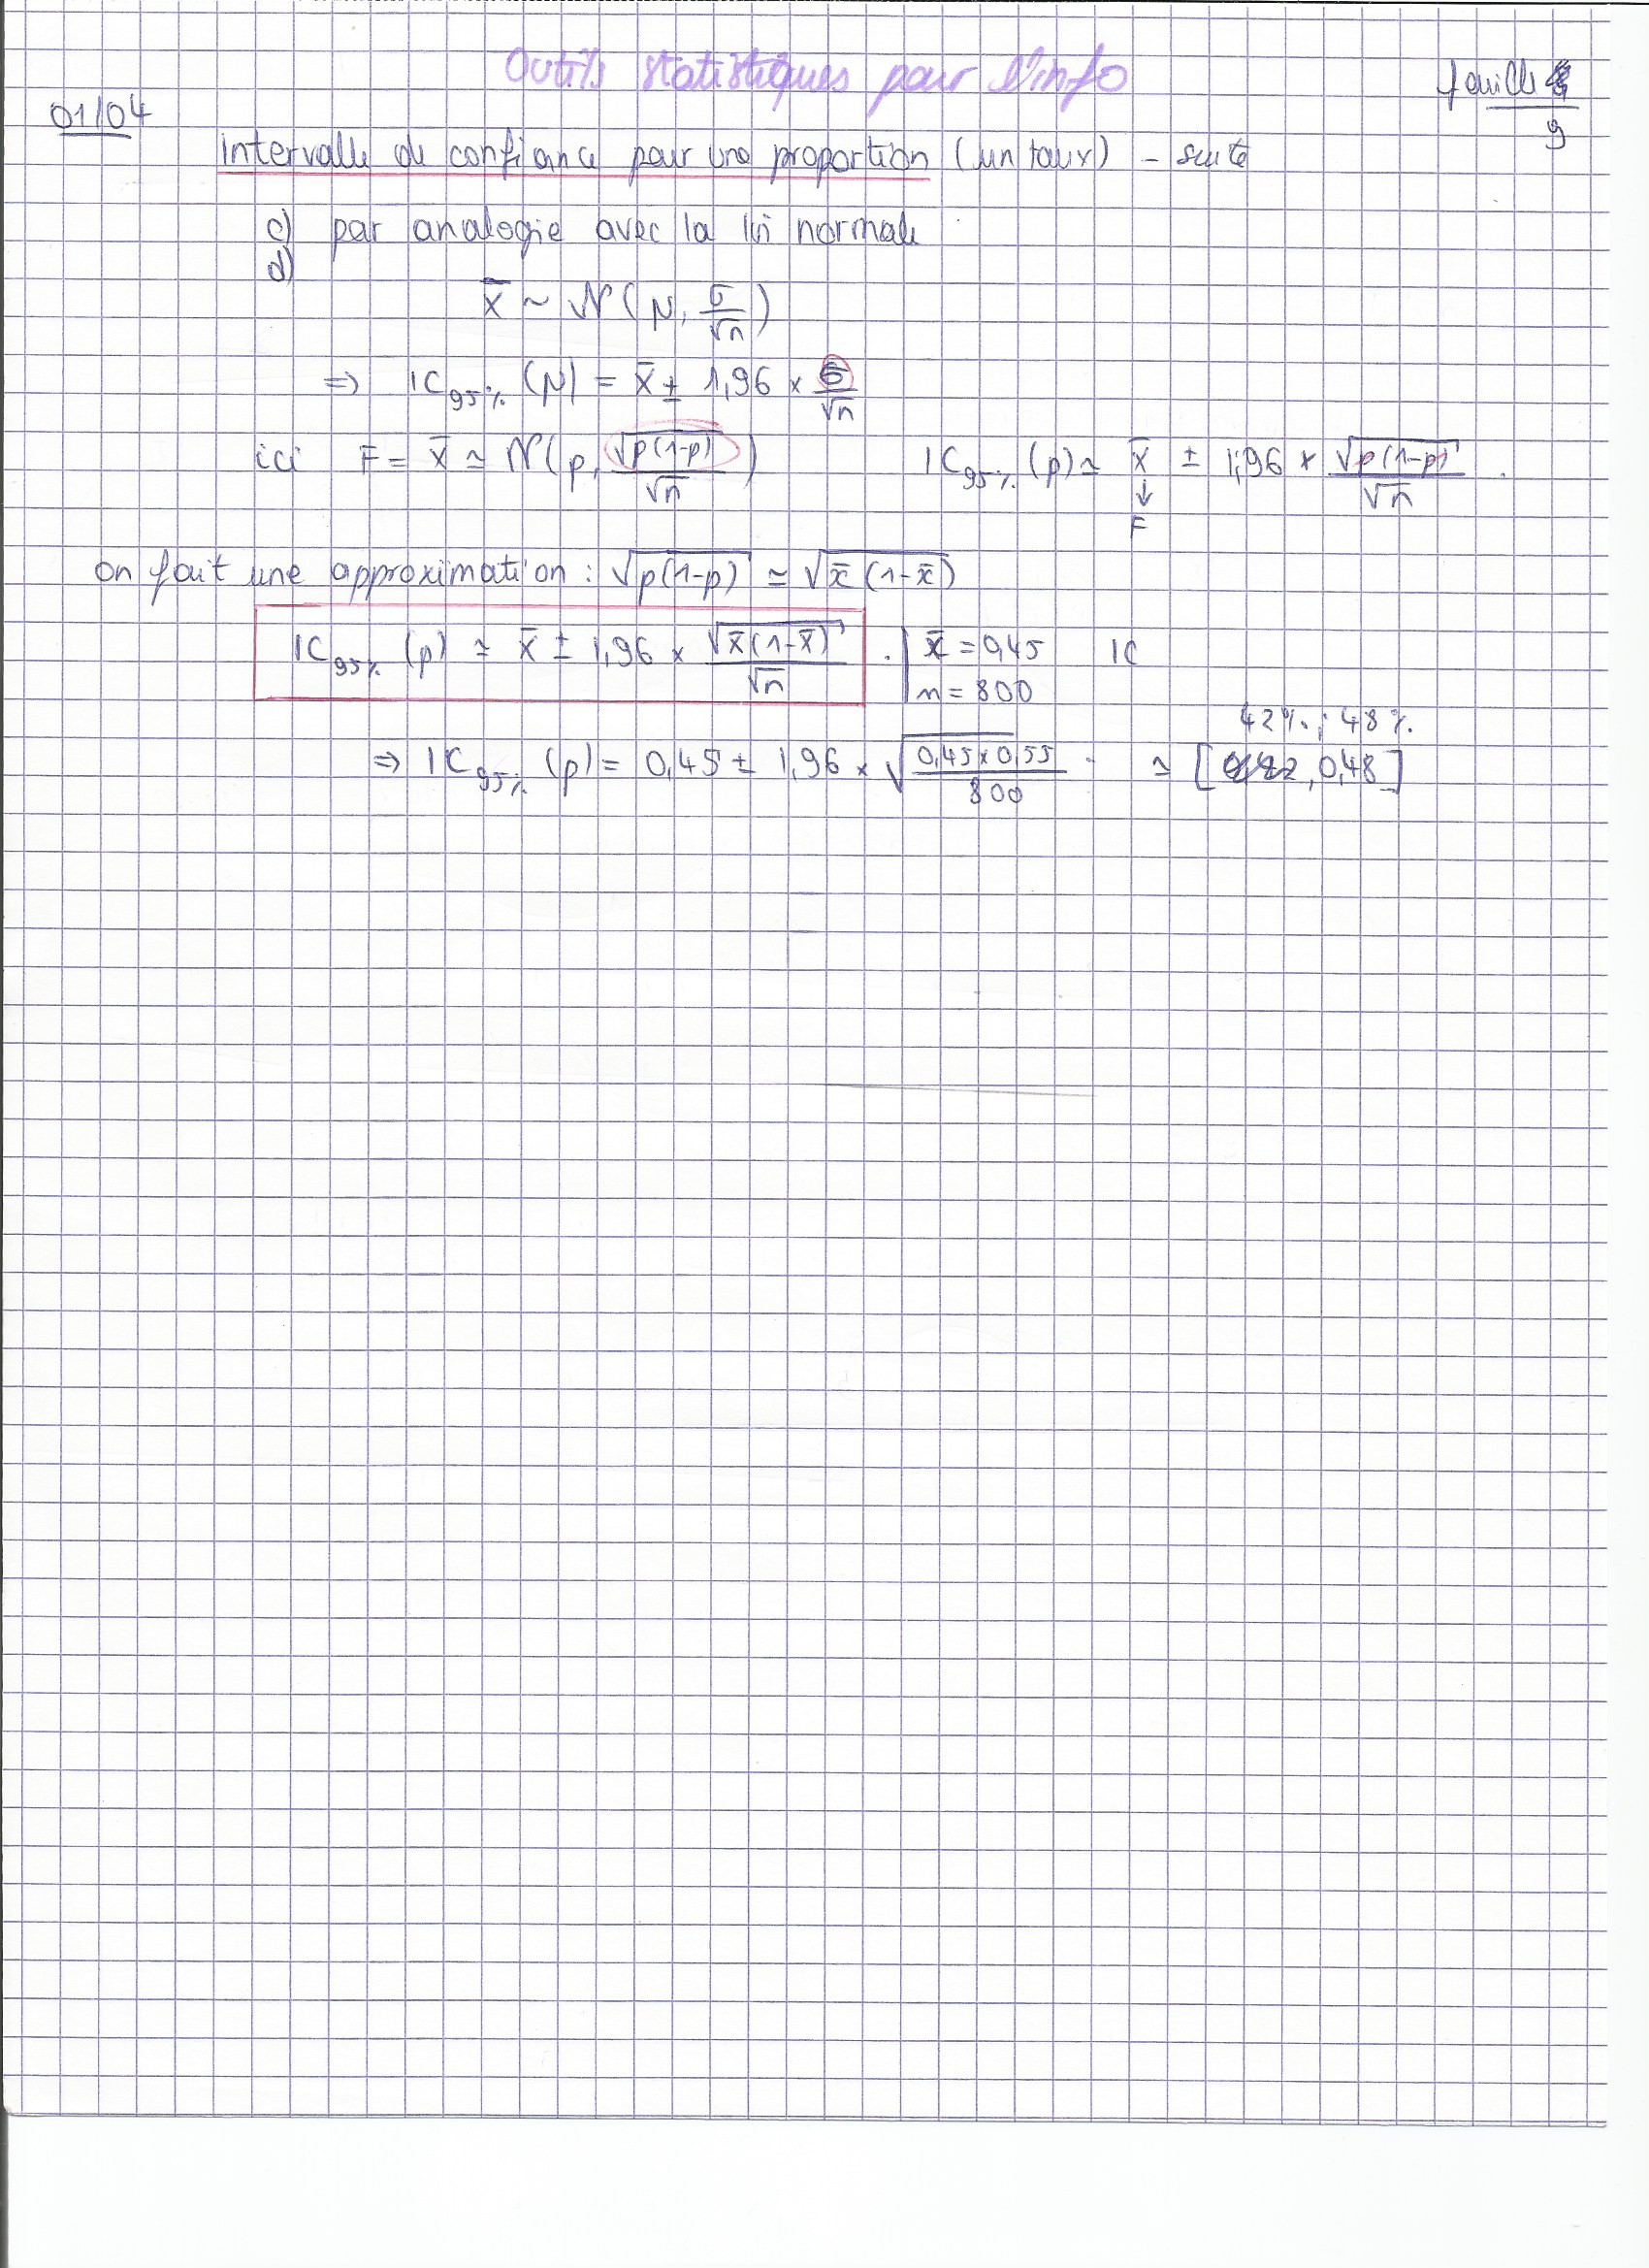 Outils statistiques pour l'info
feuille 9
01/04
Intervalle de confiance pour une proportion (un taux) - suite
c) par analogie avec la loi normale
d)
x̄ ~ N(μ, σ/√n)
⇒ IC95% (μ) = x̄ ± 1,96 × σ/√n
ici F = x̄ ≃ N(p, √p(1-p)/√n) IC95% (p) ≃ x̄ ± 1,96 × √p(1-p)/√n .
↓
F
on fait une approximation : √p(1-p) ≃ √x̄(1-x̄)
IC95% (p) ≃ x̄ ± 1,96 × √x̄(1-x̄)/√n . | x̄ = 0,45 IC
n = 800
42% ; 48%
⇒ IC95% (p) = 0,45 ± 1,96 × √(0,45×0,55/800) ≃ [0,42, 0,48]